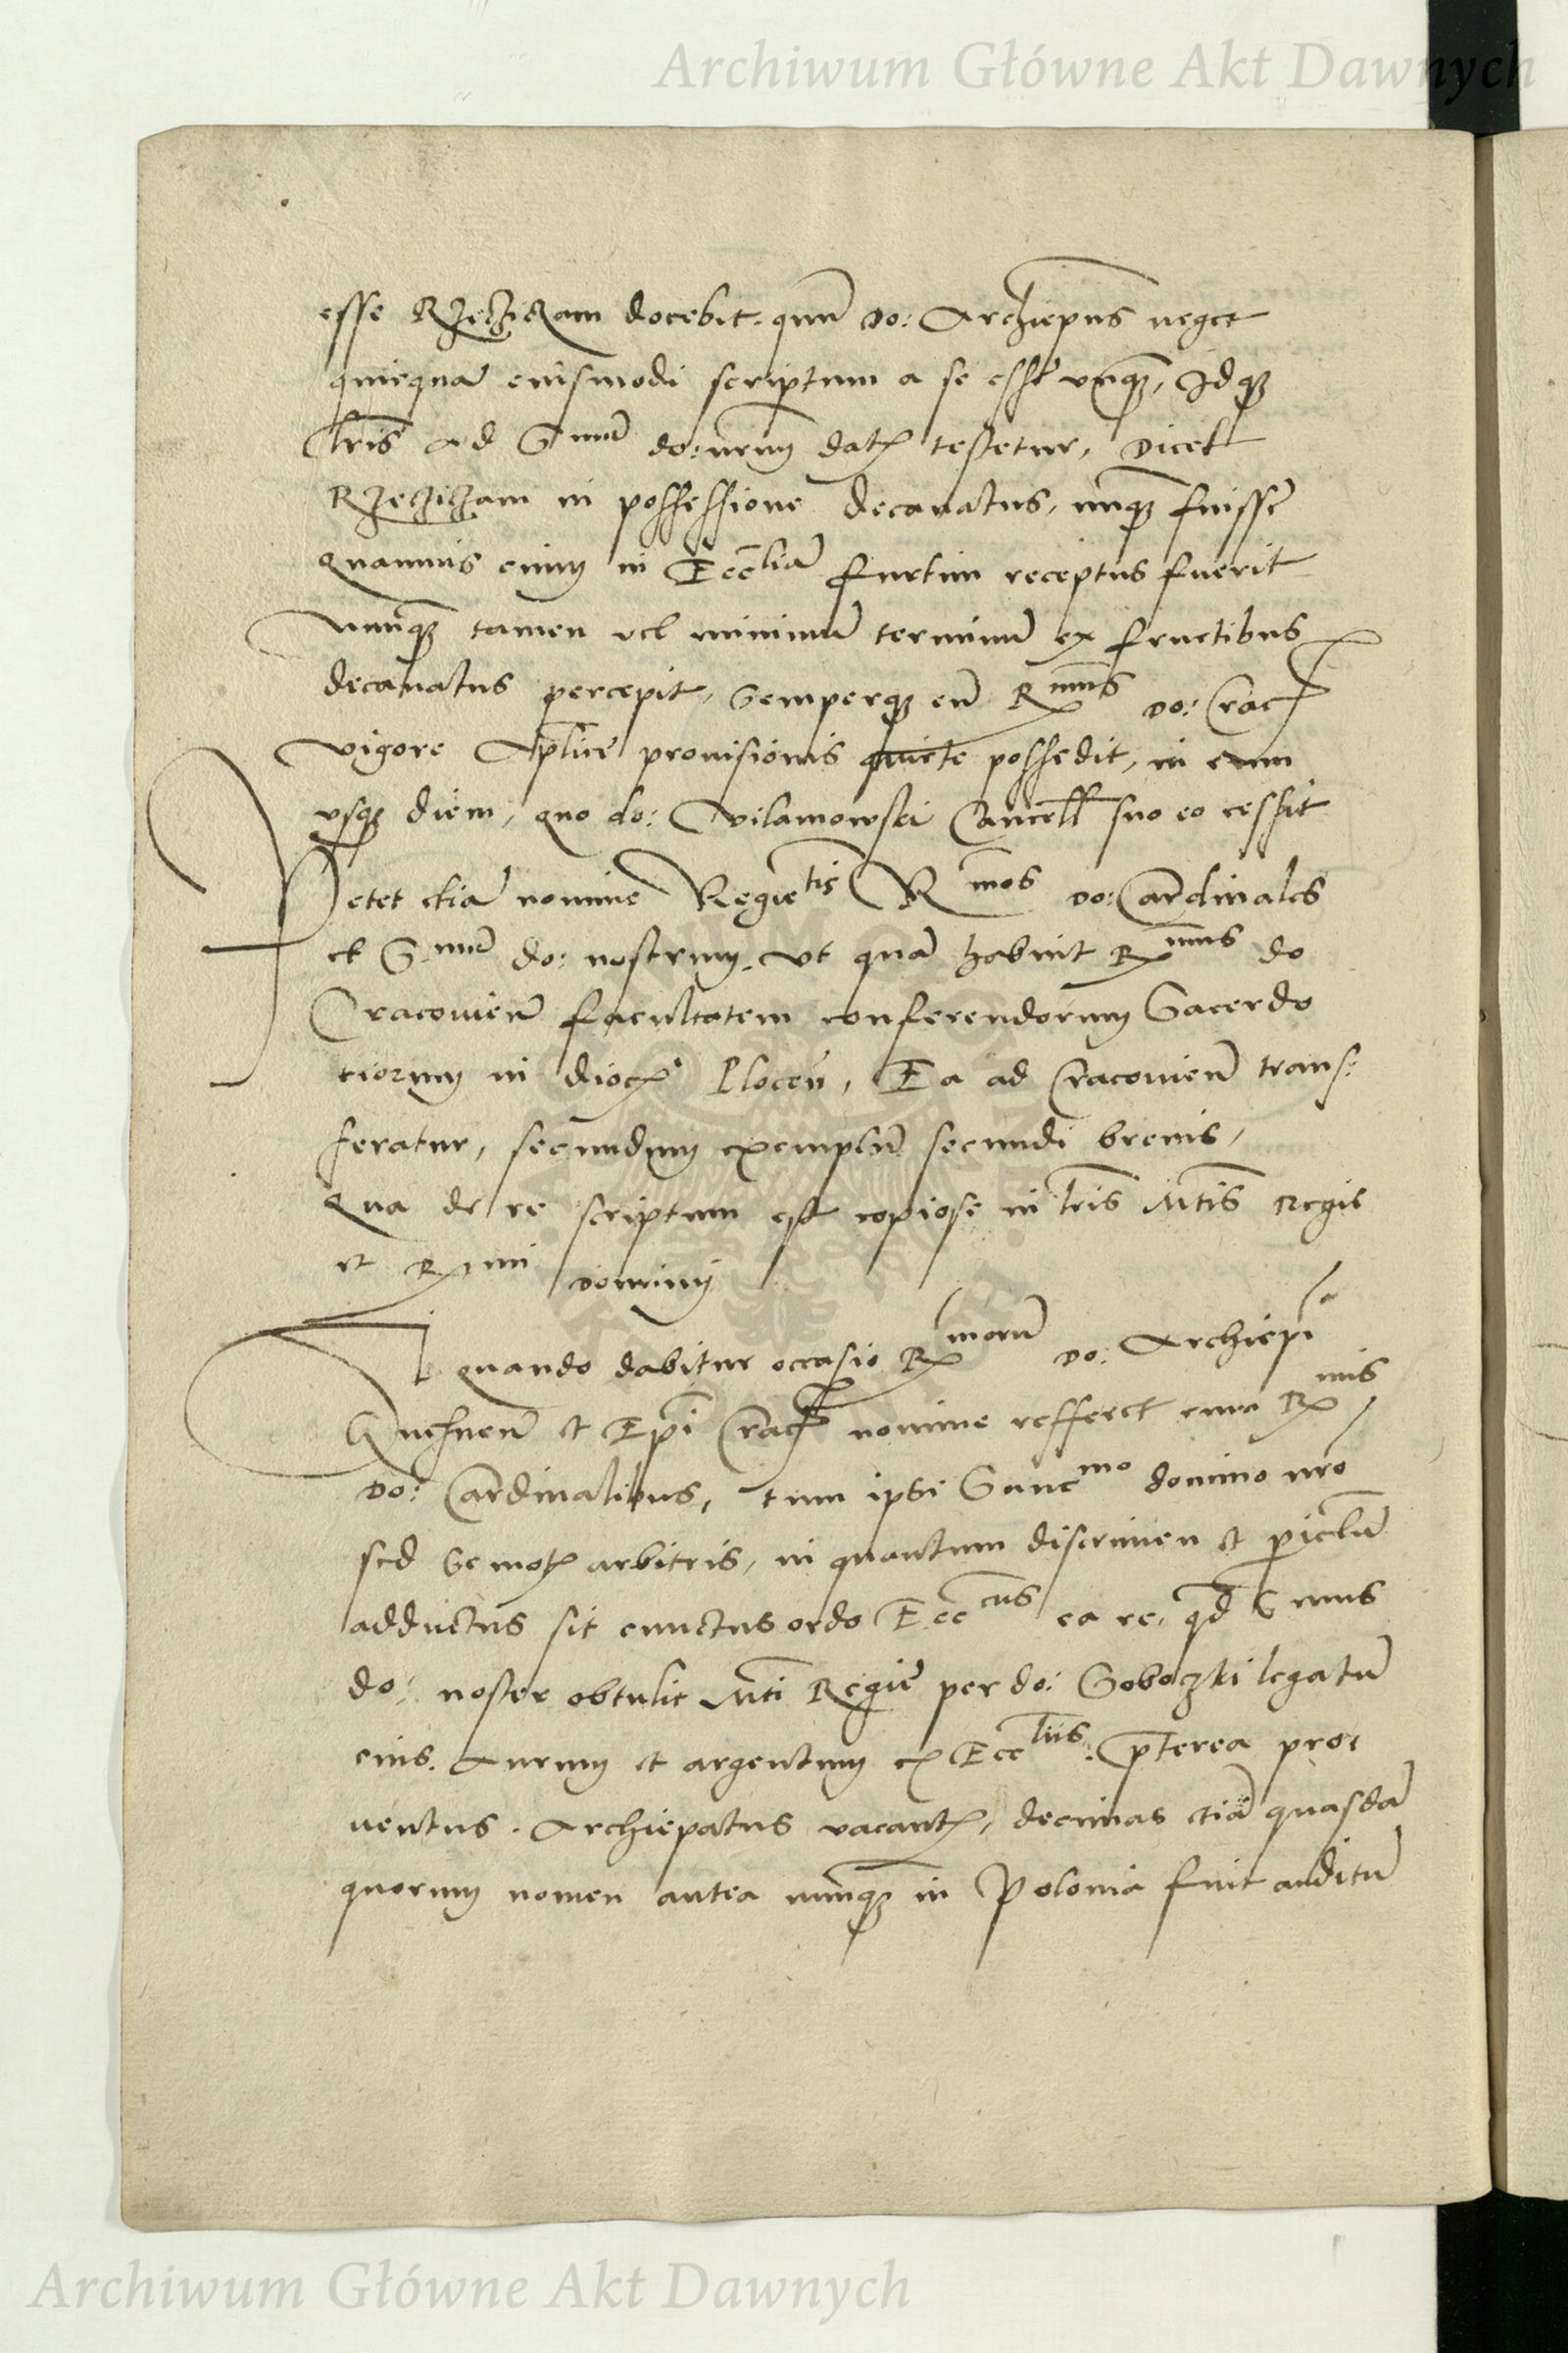 Archiwum Główne Akt Dawnych
esse Rzeziczam docebit. qum do: Archiepus neget
quicquã eiusmodi scriptum a se esse vnq̃ȝ, Idqȝ
lris ad S.mum do: nrum datis testetur, Dicet
Rzeziczam in possessione decanatus, nunqȝ fuisse
quamuis enim in Eccliã furtim receptus fuerit
Nunqȝ tamen vel minimũ terminũ ex fructibus
decanatus percepit, Semperqȝ eũ Rmus do: Crac
vigore Aplice prouisionis quiete possedit, in eum
vsqȝ diem, quo do: Vilamowski Cancell suo eo cessit
Petet etiã nomine Regie tis Rmos do: Cardinales
et S.mũ do: nostrum. Vt quã habuit Rmus do
Cracouieñ facultatem conferendorum Sacerdo
tiorum in dioc. Ploceñ, Ea ad Cracouieñ trans:
feratur, secundum exemplũ secundi breuis,
Qua de re scriptum est copiose in lris Mtis Regie
et Rmi domini
Si quando dabitur occasio Rmorũ do: Archiepi
Gnesneñ et Epi Crac nomine refferet cum Rmis
do: Cardinalibus, tum ipsi Sancmo domino nro
sed Semotis arbitris, in quantum discrimen et piclũ
adductus sit cunctus ordo Ecccus ea re, qd S mus
do: noster obtulit Mti Regie per do: Soboczki legatũ
eius. Aurum et argentum ex Eccliis. pterea pro:
uentus. Archiepatus vacantis, decimas etiã quasdã
quorum nomen antea nunqȝ in Polonia fuit auditũ
Archiwum Główne Akt Dawnych